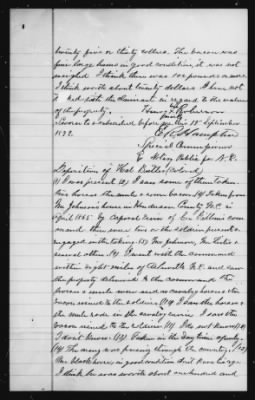 twenty five or thirty dollars. The bacon was
five large hams in good condition, it was not
weighed I think there was 100 pounds or more
I think worth about twenty dollars I have not
with the claimant in regard to the value
of the property. Henry Johnson
Sworn to & subscribed before me this 18th September
1872. E. R. Hampton
Special Commissioner
& Notary Public for N.C.
Deposition of Hal (colored)
(1) I was present (2) I saw some of them taken
two horses the mule & some bacon (4) Taken from
Mr Johnson's house in Henderson County N.C. in
April 1865 by General Gillem's com
mand there was two or the soldiers present &
engaged in the taking. (5) Mr Johnson,
several others (9) I went with the command
within eight miles of Asheville N.C. and saw
the property delivered to the command the
horses & mule were used as cavalry horses the
bacon issued to the soldiers (11) I saw the horses &
the mule rode in the cavalry service I saw the
bacon issued to the soldiers (11) I do not know (12)
I don't know. (13) Taken in the day time openly.
(14) The army was passing through the country.
One black horse in good condition
I think he was worth about one hundred and